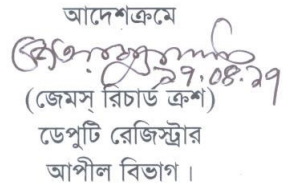 আদেশক্রমে
২৭.০৪.২৭
(জেমস্ রিচার্ড ক্রুশ)
ডেপুটি রেজিস্ট্রার
আপীল বিভাগ।